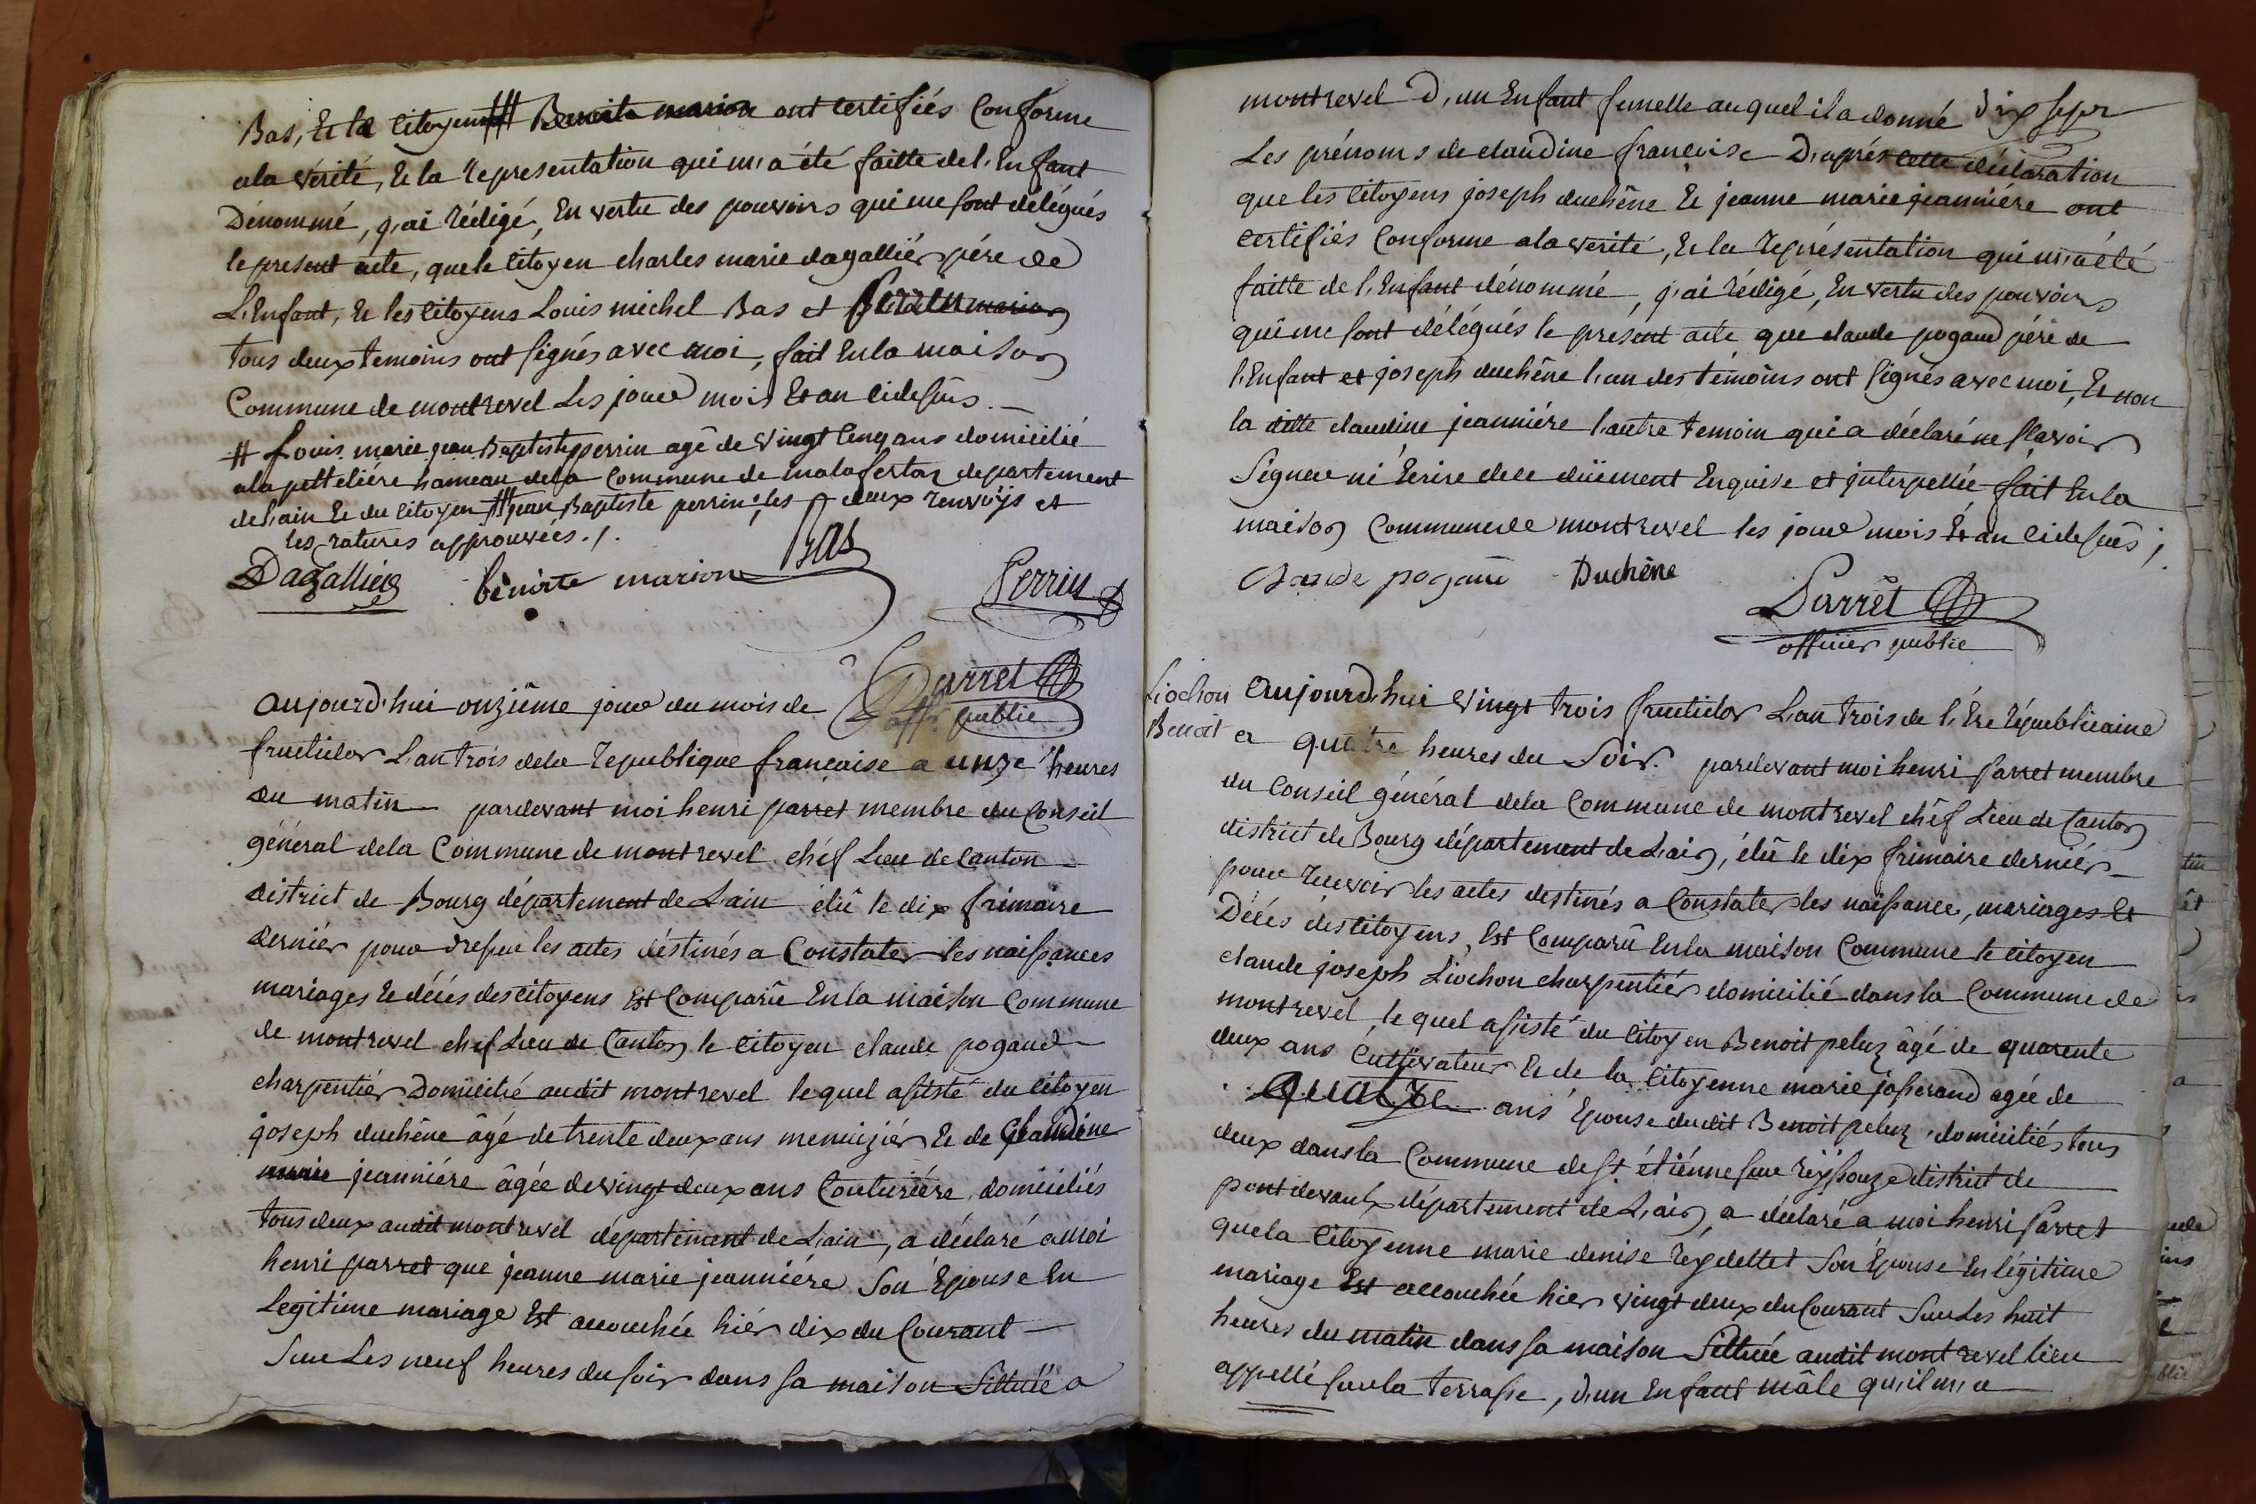 Bas, Et la Citoyenne # Benoite marion ont certifiés Conforme
a la vérité, Et la representation qui m'a été faitte de l'Enfant
Dénommé, j'ai rédigé, En vertu des pouvoirs qui me sont délégués
le present acte, que le Citoyen charles marie dagallier pére de
L'Enfant, Et les Citoyens Louis michel Bas et
tous deux temoins ont signés avec moi, fait En la maison
Commune de montrevel Les jour mois Et an ci dessus.
# Louis marie jean Baptiste perrin agé de vingt cinq ans domicilié
a la pelteliére hameau de la Commune de malafertaz departement
de l'ain Et du Citoyen # jean Baptiste perrin; les deux renvoÿs et
les ratures approuvées ./.
Dagallier benoite marion Bas Perrin
Parret
off. public
aujourd'hui onziême jour du mois de
fructidor L'an trois de la republique française a unze heures
du matin pardevant moi henri parret membre du Conseil
général de la Commune de montrevel chéf Lieu de Canton
district de Bourg département de L'ain élû le dix frimaire
derniér pour dresser les actes déstinés a Constater les naissances
mariages Et décés des Citoyens Est Comparû En la maison Commune
de montrevel chef Lieu de Canton le Citoyen claude pogaud
charpentiér Domicilié audit montrevel lequel assisté du Citoyen
joseph duchêne âgé de trente deux ans menuiziér Et de Claudine
marie jeanniére âgée de vingt deux ans Couturiére, domiciliés
tous deux audit montrevel département de L'ain, a déclaré a moi
henri parret que jeanne marie jeanniére Son Epouse En
Legitime mariage Est accouchée hiér dix du Courant
Sur Les neuf heures du soir dans sa maison Sittuée a
dix sept
montrevel D'un Enfant femelle auquel il a donné
Les prénoms de claudine françoise D'aprés cette déclaration
que les Citoyens joseph duchêne Et jeanne marie jeanniére ont
certifiés Conforme a la verité, Et la représentation qui m'a été
faitte de l'Enfant dénommé, j'ai rédigé, En vertu des pouvoirs
qui me sont délégués le présent acte que claude pogaud pére de
l'Enfant et joseph duchêne l'un des témoins ont signés avec moi, Et non
la ditte claudine jeanniére l'autre temoin qui a déclaré ne sçavoir
Signer ni Écrire de ce düement Enquise et jnterpellée fait En la
maison Commune de montrevel les jour mois Et an ci dessus;
Claude pogaud Duchêne
Parrêt
officier public
Liochon
Benoit
aujourd'hui vingt trois fructidor L'an trois de l'Ére républicaine
a quatre heures du Soir. pardevant moi henri parret membre
du Conseil général de la Commune de montrevel chéf Lieu de Canton
district de Bourg département de L'ain, élû le dix frimaire derniér
pour recevoir les actes destinés a Constater les naissance, mariages Et
Décés des Citoyens, Est Comparû En la maison Commune le Citoyen
claude joseph Liochon charpentiér domicilié dans la Commune de
montrevel, lequel assisté du Citoyen Benoit peluz âgé de quarente
deux ans Cultivateur Et de la Citoyenne marie josserand agée de
ans Epouse dudit Benoit peluz domiciliés tous
deux dans la Commune de St étiénne sur reÿssouze district de
pont devaux département de L'ain, a déclaré a moi henri parret
que la Citoyenne marie denise reydellet Son Epouse En légitime
mariage Est accouchée hier vingt deux du Courant Sur Les huit
heures du matin dans sa maison Sittuée audit montrevel lieu
appellé sur la terrasse, d'un Enfant mâle qu'il m'a